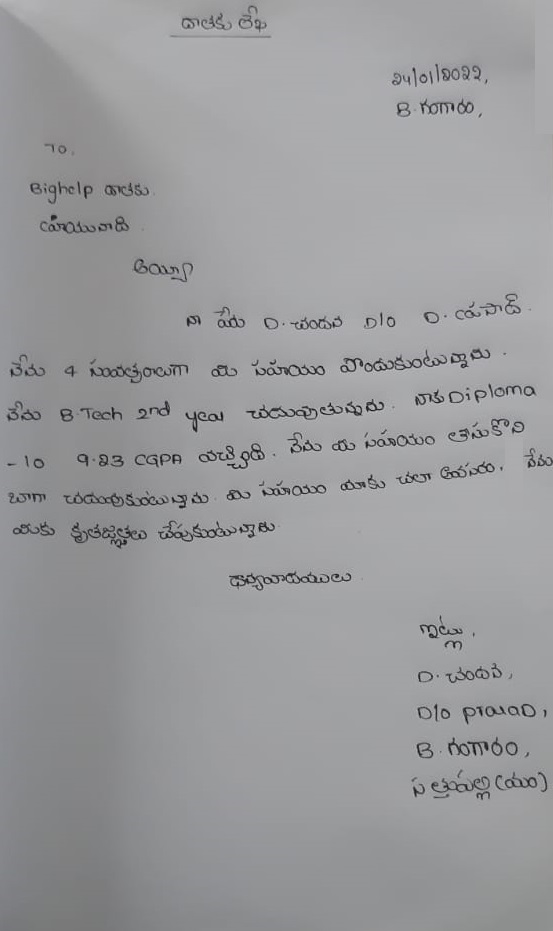 దాతకు లేఖ
24/01/2022,
B. గంగారం,
To,
Bighelp దాతకు
అయ్యా
నా పేరు D. చందన D/o D. ప్రసాద్.
నేను 4 సంవత్సరాలుగా మీ సహాయం పొందుకుంటున్నాను.
నేను B.Tech 2nd year చదువుతున్నాను. నాకు Diploma
-lo 9.23 CGPA వచ్చింది. నేను మీ సహాయం తీసుకొని
బాగా చదువుకుంటున్నాను. మీ సహాయం మాకు చలా అవసరం. నేను
మీకు కృతజ్ఞతలు చెప్పుకుంటున్నాను.
ధన్యవాదములు
ఇట్లు,
D. చందన,
D/o prasaD,
B. గంగారం,
సత్తుపల్లి (మం)